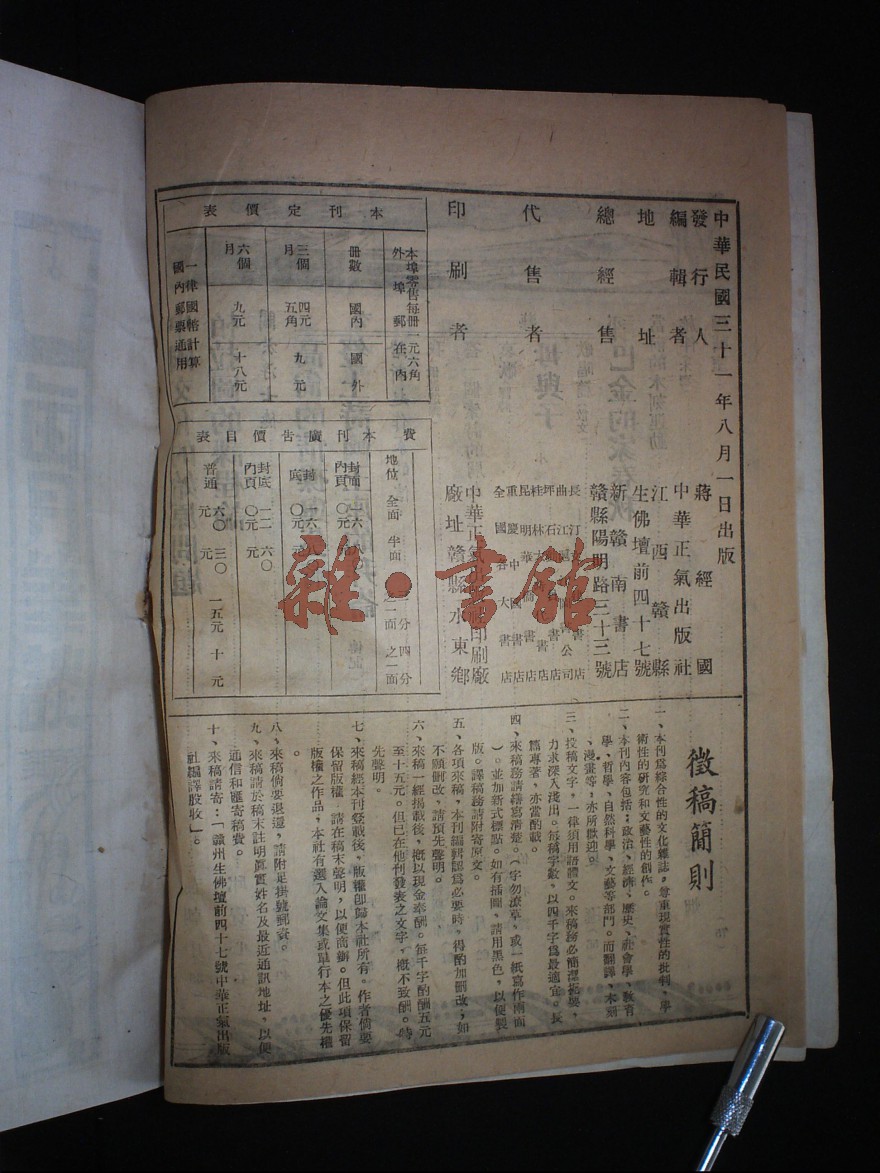 中華民國三十一年八月一日出版
發行人 蔣經國
編輯者 中華正氣出版社
地址 江西贛縣生佛壇前四十七號
總經售 新贛南書店
贛縣陽明路三十三號
代售者
印刷者 中華正氣出版社印刷廠
廠址贛縣水東鄉
本刊定價表
本埠零售每冊一元六角
外埠郵在內
冊數 國內 國外
三個月 四元五角 九元
六個月 九元 十八元
一律國幣計算
國內郵票通用
本刊廣告價目表
地位 全面 半面
普通 六〇元 三〇元 一五元 十元
徵稿簡則
一、本刊爲綜合性的文化雜誌,尊重現實性的批判,學
術性的研究和文藝性的創作。
二、本刊內容包括:政治、經濟、歷史、社會學、教育
學、哲學、自然科學、文藝等部門。而翻譯、木刻
、漫畫等,亦所歡迎。
三、投稿文字,一律須用語體文。來稿務必簡潔扼要,
力求深入淺出。每稿字數,以四千字爲最適宜。長
篇專著,亦當酌載。
四、來稿務請繕寫清楚。(字勿潦草,或一紙寫作兩面
)。並加新式標點。如有插圖,請用黑色,以便製
版。譯稿務請附寄原文。
五、各項來稿,本刊編輯認爲必要時,得酌加刪改;如
不願刪改,請預先聲明。
六、來稿一經揭載後,概以現金奉酬。每千字酌酬五元
至十五元。但已在他刊發表之文字,概不致酬。請
先聲明。
七、來稿經本刊登載後,版權即歸本社所有。作者倘要
保留版權,請在稿末聲明,以便商辦。但此項保留
版權之作品,本社有選入論文集或單行本之優先權
。
八、來稿倘要退還,請附足掛號郵資。
九、來稿請於稿末註明眞實姓名及最近通訊地址,以便
通信和匯寄稿費。
十、來稿請寄:「贛州生佛壇前四十七號中華正氣出版
社編譯股收」。
雜·書館